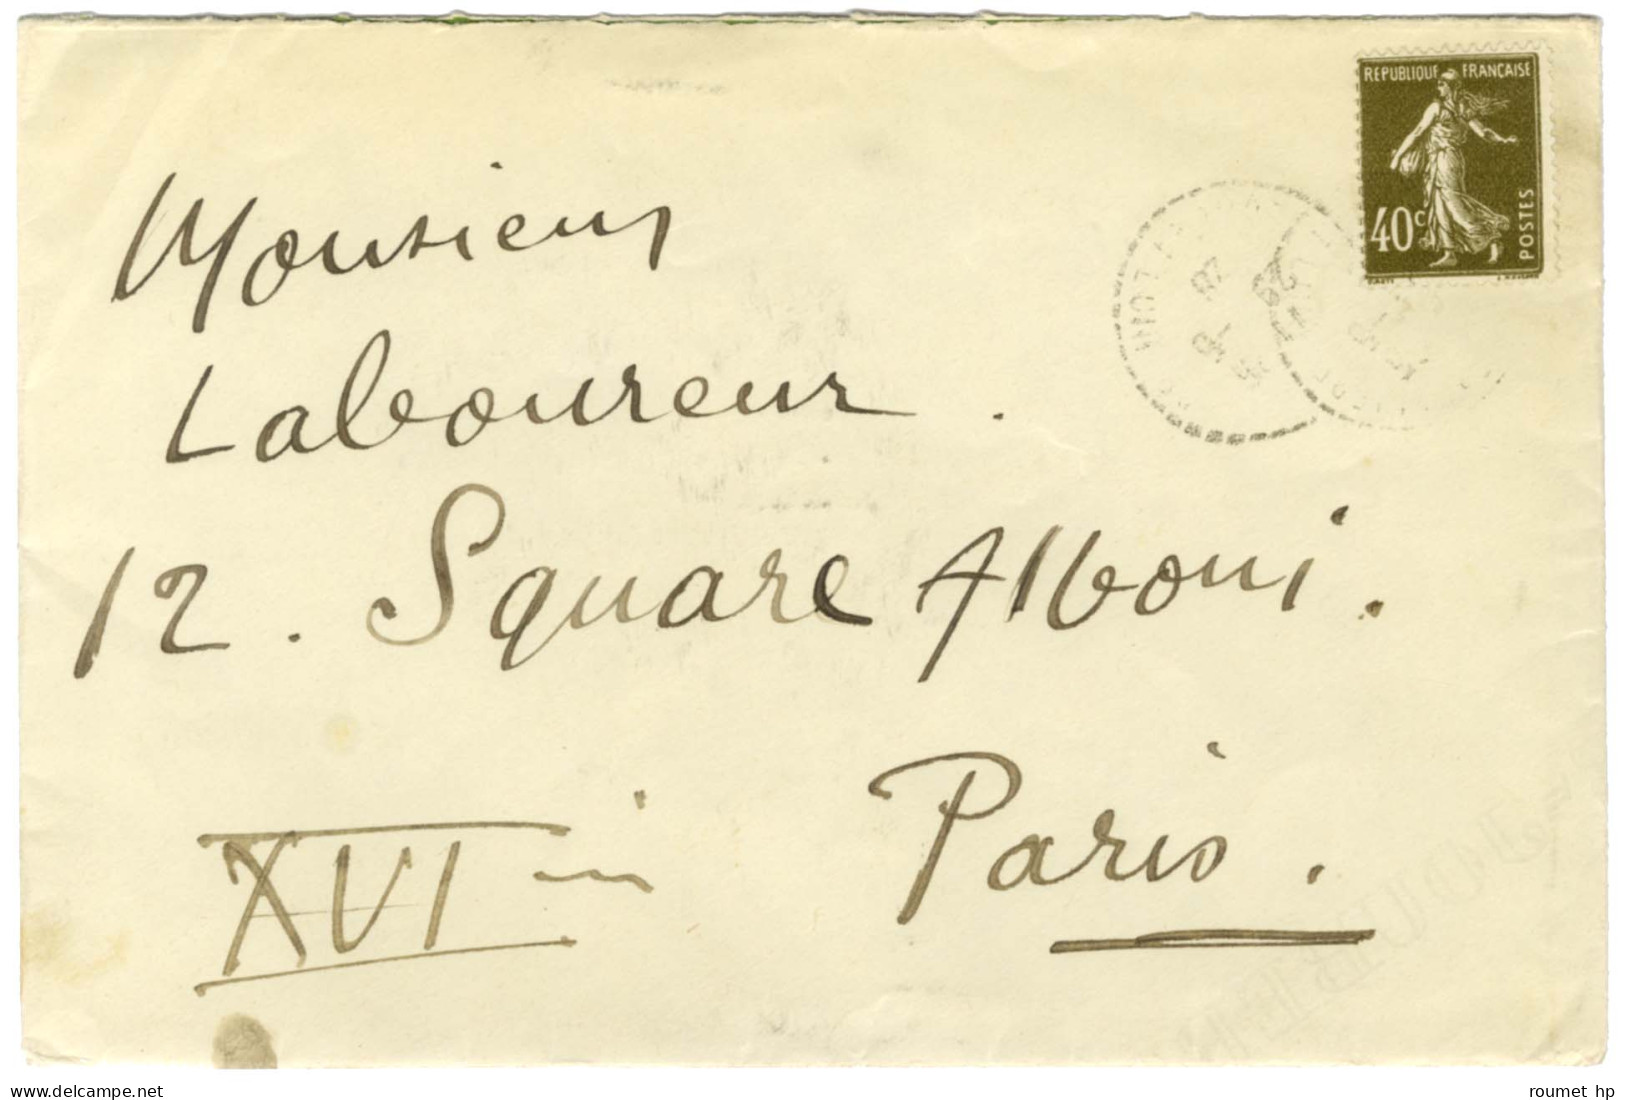 REPUBLIQUE FRANÇAISE
40c
POSTES
Monsieur
Laboureur.
12. Square Alboni.
XVI
Paris.
delcampe.net
roumet hp